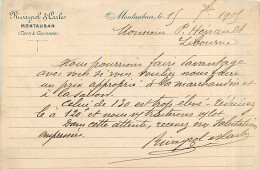 Rivayrol & Karles
MONTAUBAN
(Tarn & Garonne)
Montauban, le 15 1905
Monsieur P. Herault
Libourne
Nous pourrions faire davantage
avec vous si vous vouliez nous faire
un prix approprié à la marchandise et
à la saison.
Celui de 130 est trop élevé
le à 120 et nous traiterons
Dans cette attente, recevez nos salutations
empressées